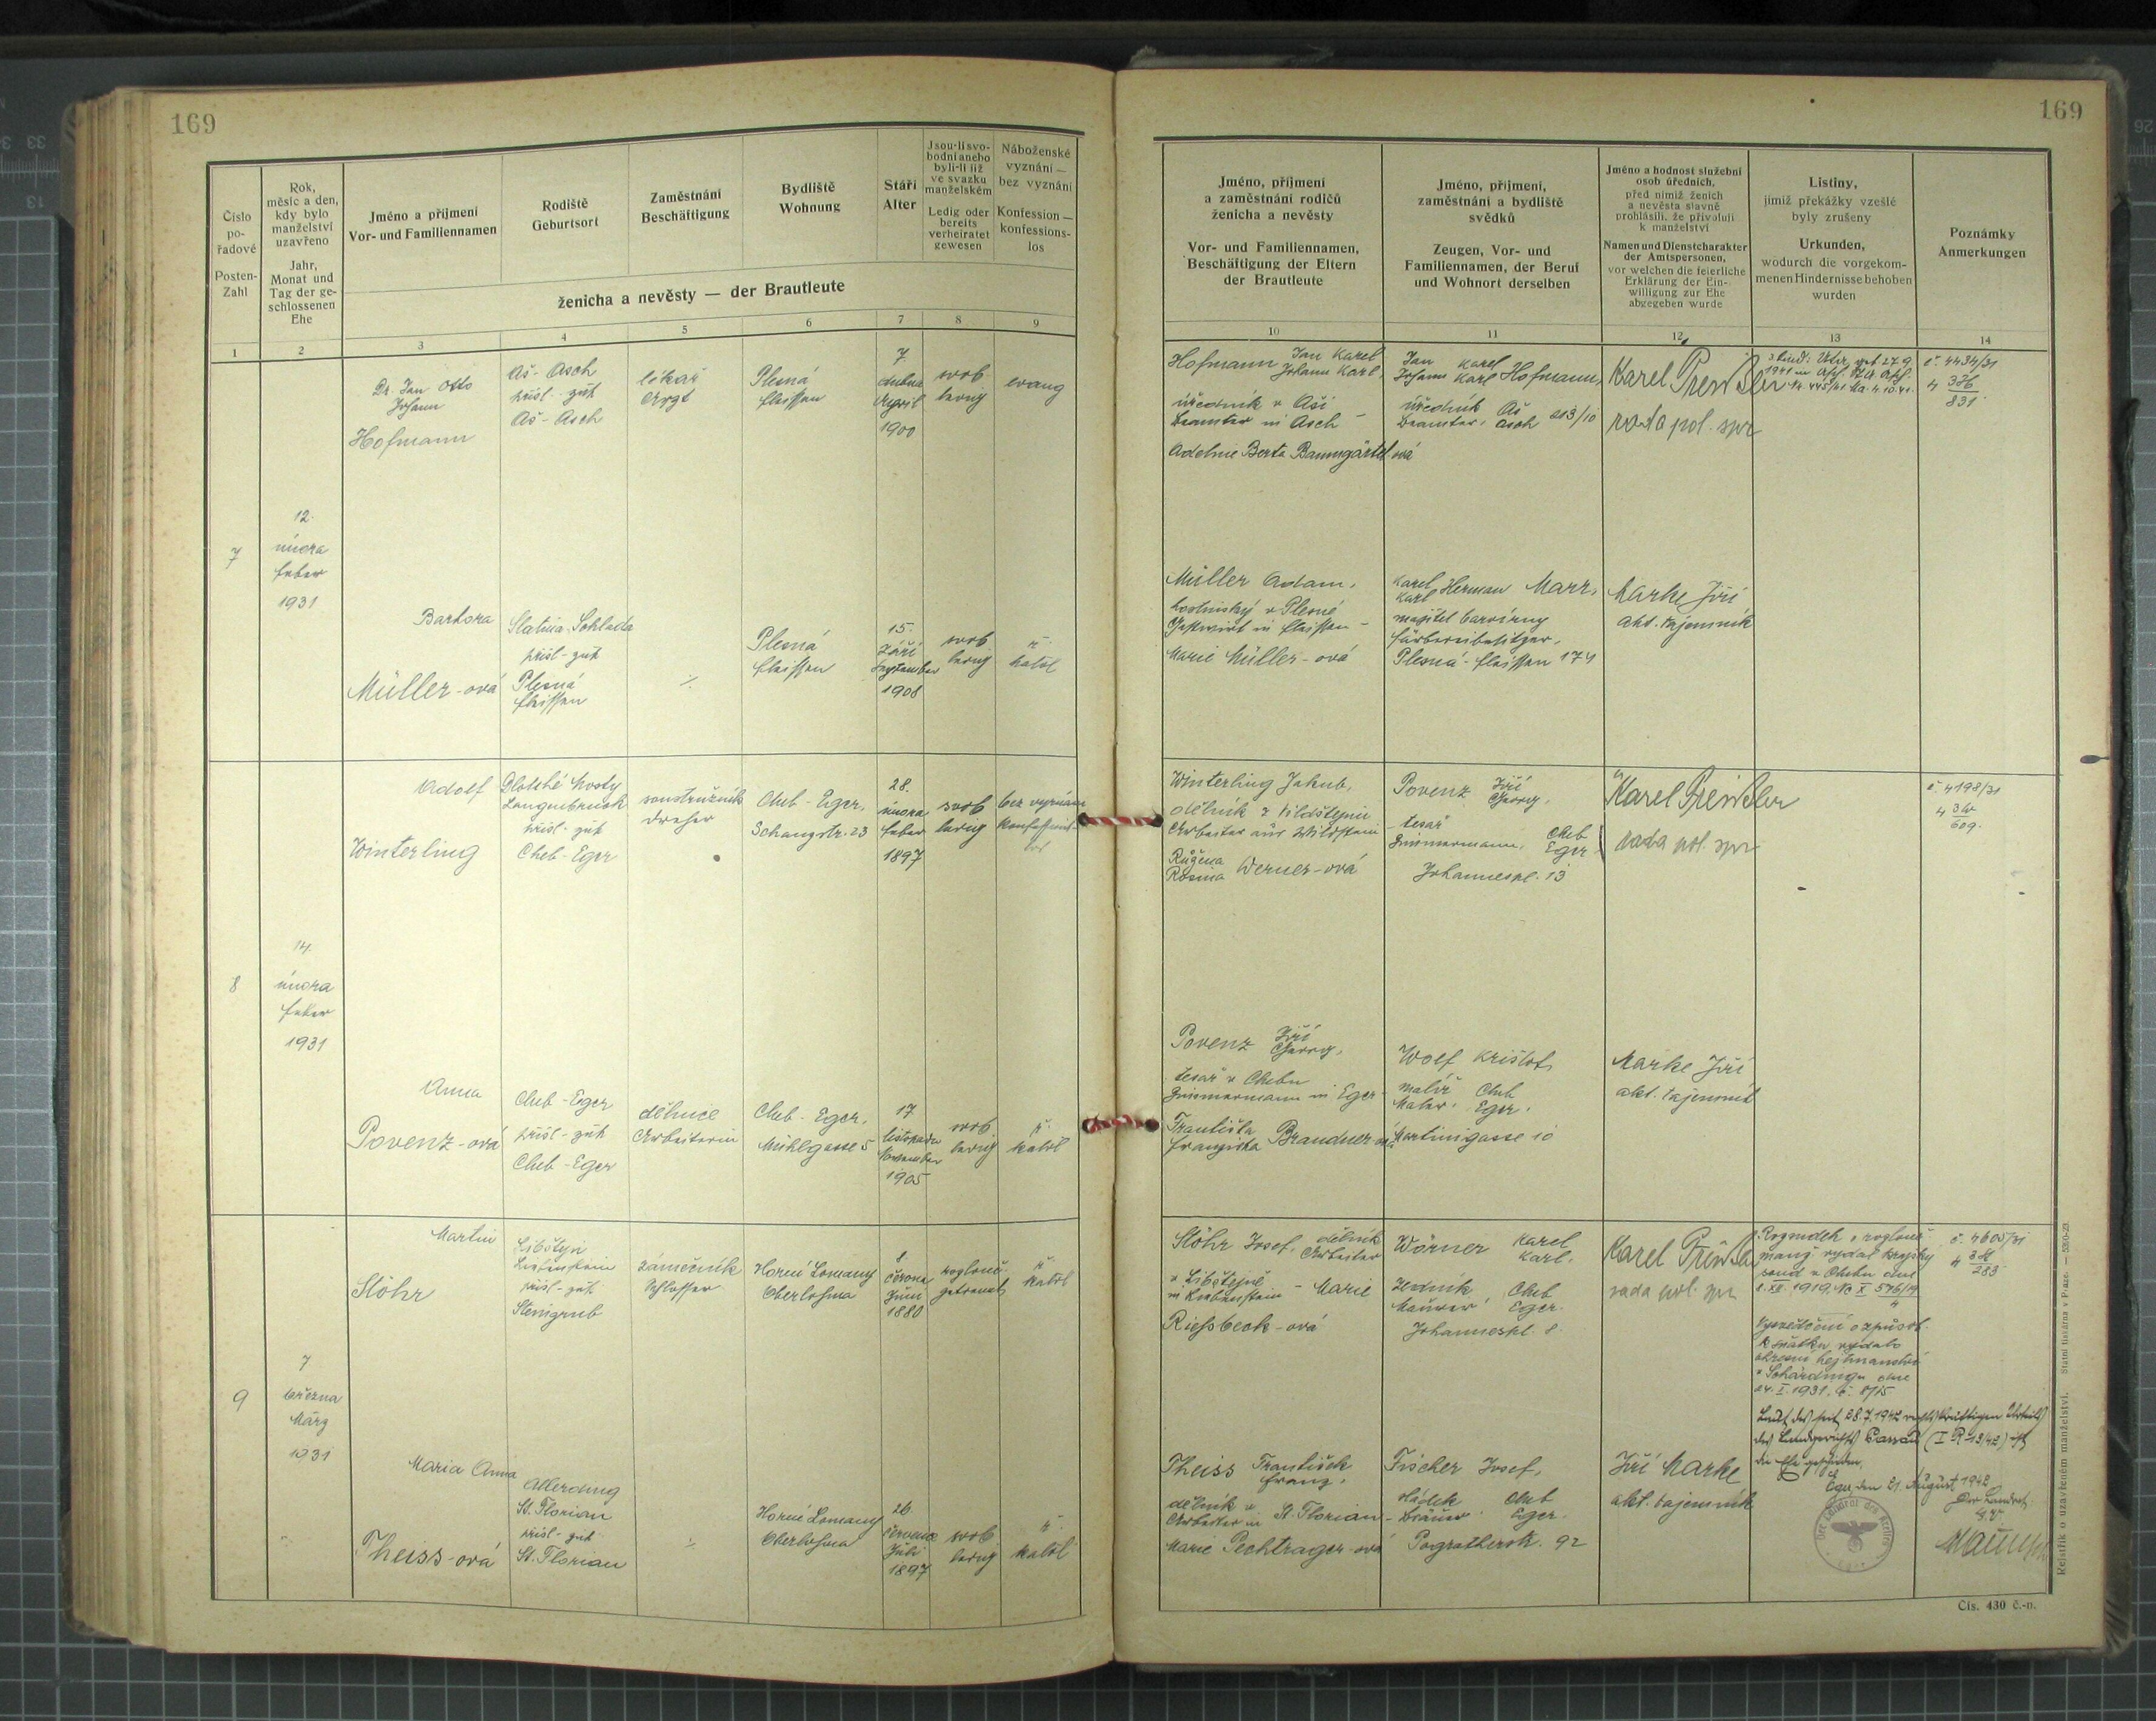 169
Číslo pořadové
Posten-Zahl
Rok, měsíc a den, kdy bylo manželství uzavřeno
Jahr, Monat und Tag der geschlossenen Ehe
Jméno a příjmení
Vor- und Familiennamen
Rodiště
Geburtsort
Zaměstnání
Beschäftigung
Bydliště
Wohnung
Stáří
Alter
Jsou-li svobodni anebo byli-li již ve svazku manželském
Ledig oder bereits verheiratet gewesen
Náboženské vyznání — bez vyznání
Konfession — konfessionslos
ženicha a nevěsty — der Brautleute
1 2 3 4 5 6 7 8 9
7
12.
února
feber
1931
Dr. Jan Otto
Johann
Hofmann
Aš - Asch
přísl - zust
Aš - Asch
lékař
Arzt
Plesná
Fleissen
7.
dubna
April
1900
svob
ledig
evang
Barbora
Müller-ová
Slatina-Schlada
přísl - zust
Plesná
Fleissen
./.
Plesná
Fleissen
15.
září
September
1908
svob
ledig
ř.
katol
8
14.
února
feber
1931
Adolf
Winterling
Dlouhé Mosty
Langenbruck
přísl - zust
Cheb - Eger
soustružník
Dreher
Cheb - Eger,
Schanzstr. 23
28.
února
feber
1897
svob
ledig
bez vyznání
konfessions-
los
Anna
Povenz-ová
Cheb - Eger
přísl - zust
Cheb - Eger
dělnice
Arbeiterin
Cheb - Eger,
Mühlgasse 5
17
listopadu
November
1905
svob
ledig
ř.
katol
9
7
března
März
1931
Martin
Stöhr
Libštejn
Liebenstein
přísl - zust
Steingrub
zámečník
Schlosser
Horní Lomany
Oberlohma
8.
června
Juni
1880
rozlouč
getrennt
ř.
katol
Maria Anna
Theiss-ová
Allerding
St. Florian
přísl - zust
St. Florian
./.
Horní Lomany
Oberlohma
26.
července
Juli
1897
svob
ledig
ř.
katol
169
Jméno, příjmení a zaměstnání rodičů ženicha a nevěsty
Vor- und Familiennamen, Beschäftigung der Eltern der Brautleute
Jméno, přijmení, zaměstnání a bydliště svědků
Zeugen, Vor- und Familiennamen, der Beruf und Wohnort derselben
Jméno a hodnost služební osob úředních, před nimiž ženich a nevěsta slavně prohlásili, že přivolují k manželství
Namen und Dienstcharakter der Amtspersonen, vor welchen die feierliche Erklärung der Einwilligung zur Ehe abgegeben wurde
Listiny, jimiž překážky vzešlé byly zrušeny
Urkunden, wodurch die vorgekommenen Hindernisse behoben wurden
Poznámky
Anmerkungen
10 11 12 13 14
Hofmann Jan Karel
Johann Karl,
úředník v Aši
Beamter in Asch -
Adeline Berta Baumgärtel-ová
Jan Karel
Johann Karl Hofmann,
úředník Aš
Beamter, Asch 213/10
Karel
rada pol. spr
č. 4434/31
4 386
831
Müller Adam,
hostinský v Plesné
Gastwirt in Fleissen -
Marie Müller-ová
Karel
Karl Herman Marz,
majitel barvírny
Färbereibesitzer,
Plesná - Fleissen 174
Marke Jiří
akt. tajemník
Winterling Jakub,
dělník z Vildštejnu
Arbeiter aus Wildstein
Růžena
Rosina Werner-ová
Povenz Jiří
Georg,
tesař
Zimmermann, Cheb
Eger
Johannespl. 13
Karel
rada pol. spr
č. 4198/31
609.
Povenz Jiří
Georg,
tesař v Chebu
Zimmermann in Eger
Františka
Franziska Brandner-ová
Wolf Krištof,
malíř Cheb
Maler, Eger,
Martinigasse 10
Marke Jiří
akt. tajemník
Stöhr Josef, dělník
Arbeiter
v Libštejně
in Liebenstein - Marie
Riessbeck-ová
Wörner Karel
Karl,
zedník, Cheb
Maurer, Eger.
Johannespl. 8.
Karel
rada pol. spr
Rozsudek o rozlouč
manž. vydal krajský
soud v Chebu dne
1919, Nc X 576/19
Vysvědčení o způsob.
k sňatku vydalo
okresní hejtmanství
v Schärdingu dne
24. I. 1931, č. 8/15
Laut des seit 28.7.1942 rechtskräftigen Urteils
des Landgerichts Passau (I R 19/42) ist
die Ehe geschieden.
Eger, den 21. August 1942
Der Landrat
č. 4605/31
283
Theiss František
Franz,
dělník v
Arbeiter in St. Florian -
Marie Pechtrager-ová
Fischer Josef,
sládek Cheb
Bräuer Eger.
Pogratherstr. 92
Jiří Marke
akt. tajemník
Der Landrat des Kreises Eger
Rejstřík o uzavřeném manželství. Státní tiskárna v Praze. — 5390-23.
Čís. 430 č.-n.